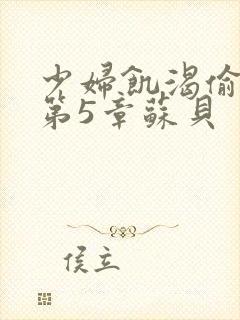 少婦飢渴偷
第5章蘇貝
侯立